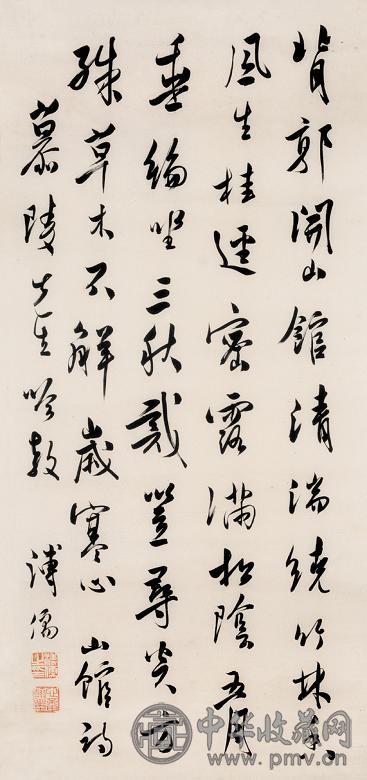 背郭開山館清湍繞竹林春
風生桂逕密露滿松陰五月
垂綸坐三秋戴笠尋炎方
殊草木不解歲寒心 山館詩
慕陵先生吟教 溥儒
中华收藏网
www.pmv.cn